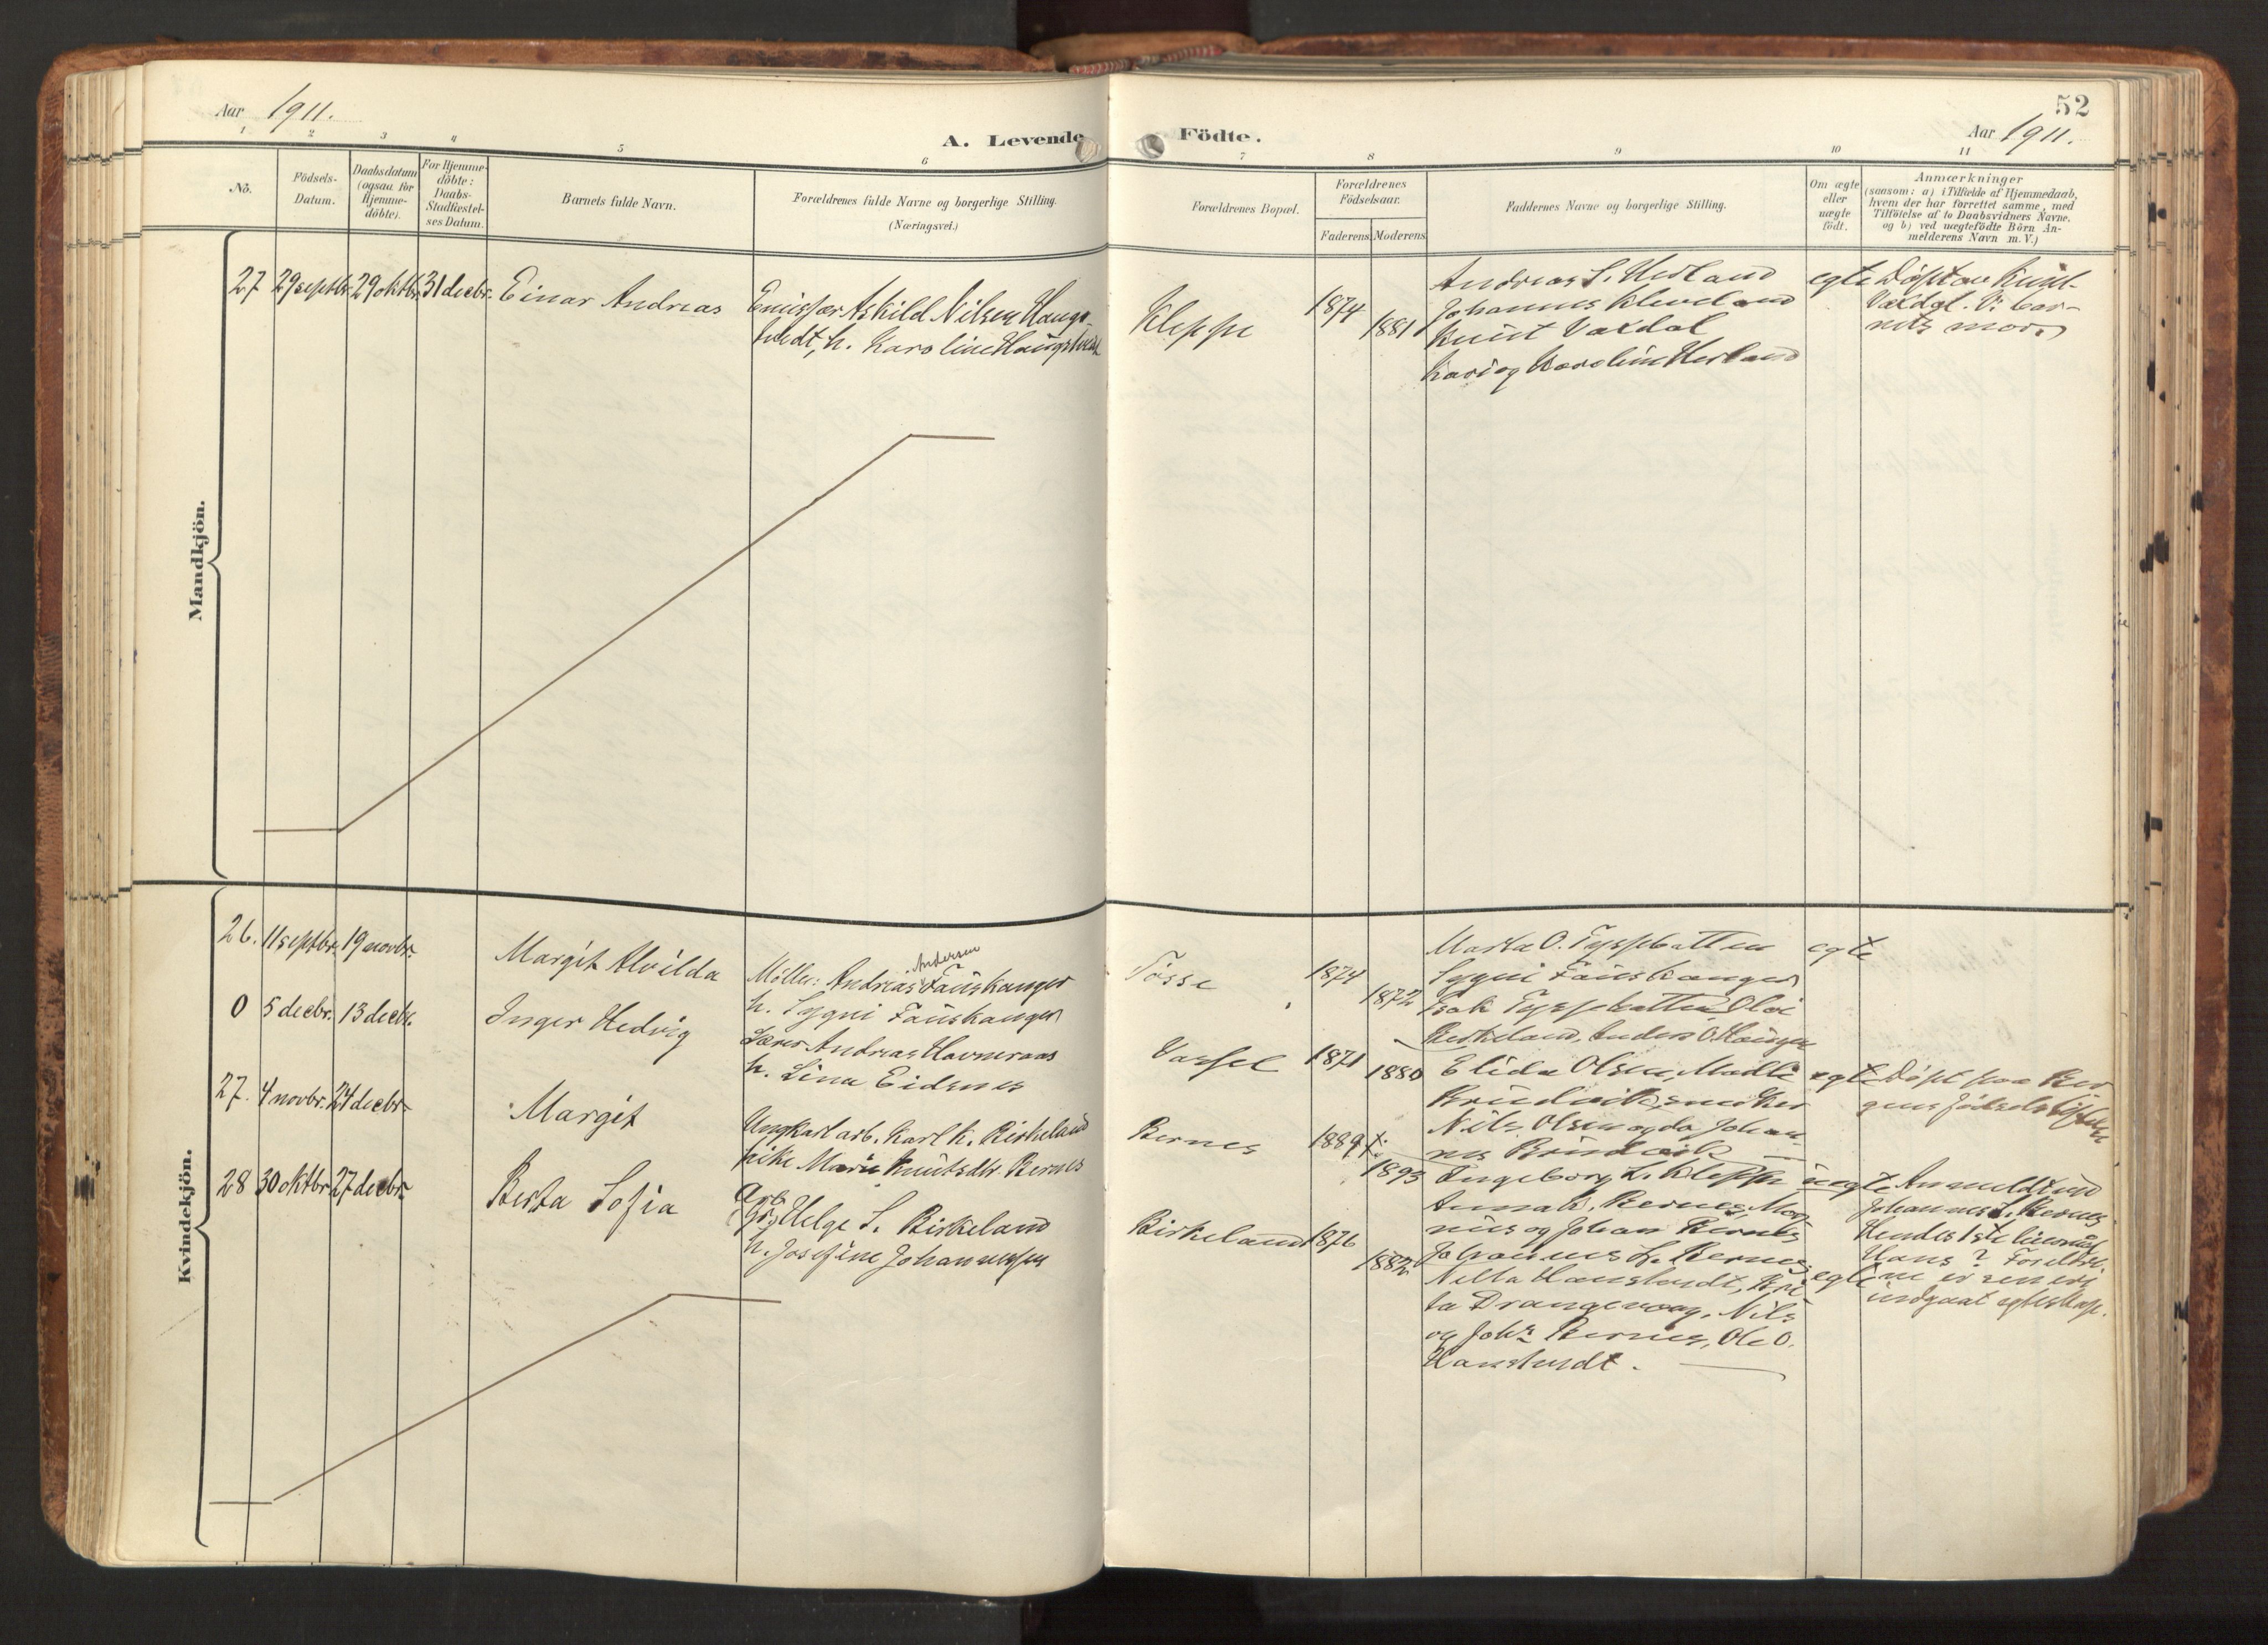 Aar 1911.
A. Levende Födte.
52
Aar 1911.
1 2 3 4 5 6 7 8 9 10 11
Nô.
Födsels-
Datum.
Daabsdatum
(ogsaa for
Hjemme-
döbte).
For Hjemme-
döbte:
Daabs-
Stadfæstel-
ses Datum.
Barnets fulde Navn.
Forældrenes fulde Navne og borgerlige Stilling.
(Næringsvei.)
Forældrenes Bopæl.
Forældrenes
Födselsaar.
Faderens. Moderens.
Faddernes Navne og borgerlige Stilling.
Om ægte
eller
uægte
födt.
Anmærkninger
(saasom: a) i Tilfælde af Hjemmedaab,
hvem der har forrettet samme, med
Tilföielse af to Daabsvidners Navne,
og b) ved uægtefödte Börn An-
melderens Navn m. V.)
Mandkjön.
27 29 septbr. 29 oktbr. 31 decbr. Einar Andreas
Emissær Askild Nilsen Haugs-
tvedt, h. Karoline Haugstvedt
Kleppe
1874
1881
Andreas S. Herland
Johannes Kleveland
Knut Vaxdal
Kari og Karoline Herland
egte
Döpt av Knut
Vaxdal. V: bar-
nets mor.
Kvindekjön.
26. 11 septbr. 19 novbr. Margit Alvilda
Andersen
Möller: Andreas Fauskanger
h. Sygni Fauskanger
Tösse
1874
1872
Marta O. Tyssebotten
Sygni Fauskanger
Isak Tyssebotten Olai
Birkeland, Anders O. Hauge
egte
0 5 decbr. 13 decbr. Inger Hedvig
Lærer Andreas Havneraas
h. Lina Eidsnes
Vassel
1871
1880
Elida Olsen, Madli
Bruvik, snedker
Nils Olsen og do Johan-
nes Bruvik
egte
Döpt paa Ber
gens födselsstiftelse
27. 4 novbr. 24 decbr. Margit
Ungkarl arb. Karl K. Birkeland
pike Marie Knutsdtr. Bernes
Bernes
1889
1893
Ingeborg L. Kleppe
Anna K. Bernes, Mag-
nus og Johan Bernes
Johannes L. Bernes
uegte
Anmeldt ved
Johannes L. Bernes
Hendes 1ste
Hans ? Foreldre-
ne er senere
indgaat egteskap.
28 30 oktbr. 27 decbr. Berta Sofia
Arb.
Helge S. Birkeland
h. Josefine Johannessen
Birkeland
1876
1882
Nella Hanstvedt, Bri
ta Drangevaag, Nils
og Johs Bernes, Ole O.
Hanstvedt.
egte